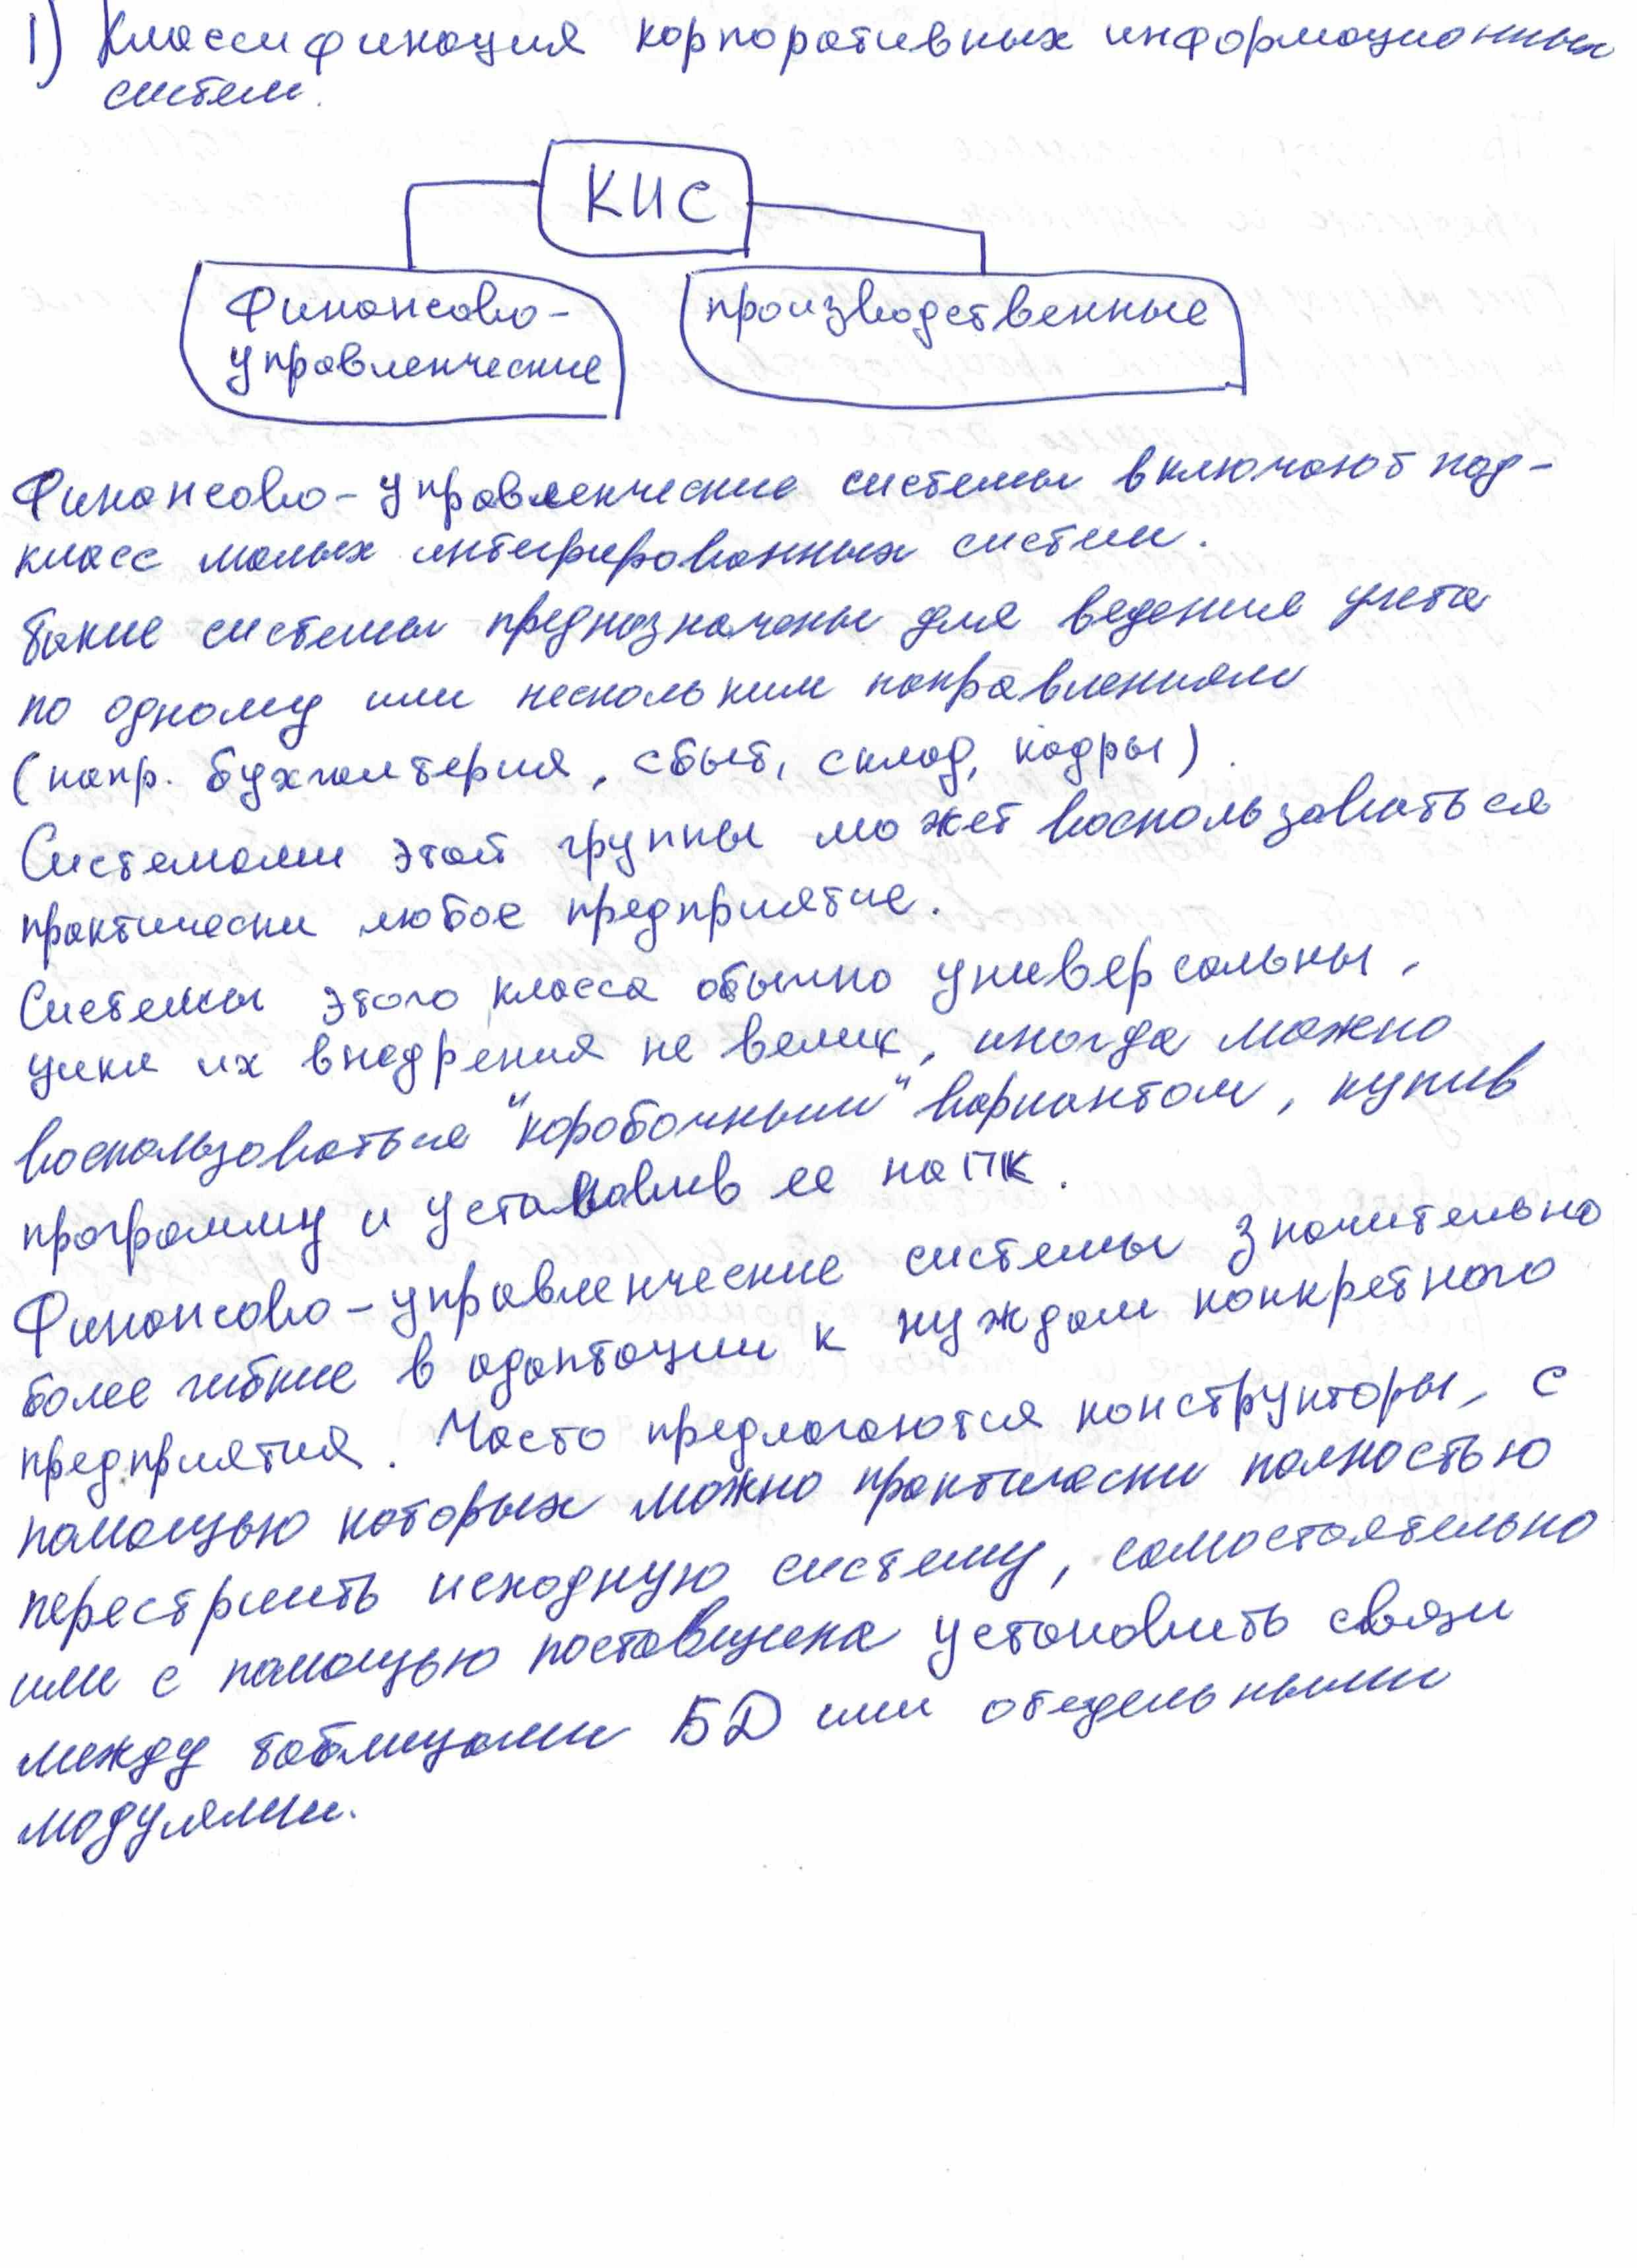 1) Классификация корпоративных информационных
систем.
КИС
Финансово-
управленческие
производственные
Финансово-управленческие системы включают под-
класс малых интегрированных систем.
Такие системы предназначены для ведения учета
по одному или нескольким направлениям
(напр. бухгалтерия, сбыт, склад, кадры).
Системами этой группы может воспользоваться
практически любое предприятие.
Системы этого класса обычно универсальны,
цикл их внедрения не велик, иногда можно
воспользоваться "коробочным" вариантом, купив
программу и установив ее на ПК.
Финансово-управленческие системы значительно
более гибкие в адаптации к нуждам конкретного
предприятия. Часто предлагаются конструкторы, с
помощью которых можно практически полностью
перестроить исходную систему, самостоятельно
или с помощью поставщика установить связи
между таблицами БД или отдельными
модулями.